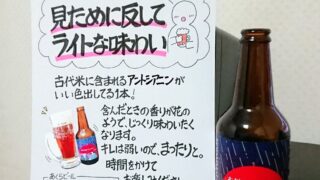 見ために反して
ライトな味わい
古代米に含まれるアントシアニンが
いい色出してる1本!
含んだときの香りが花の
ようで、じっくり味わいたく
なります。
キレは弱いので、まったりと。
時間をかけて
お楽しみください
あくらビール